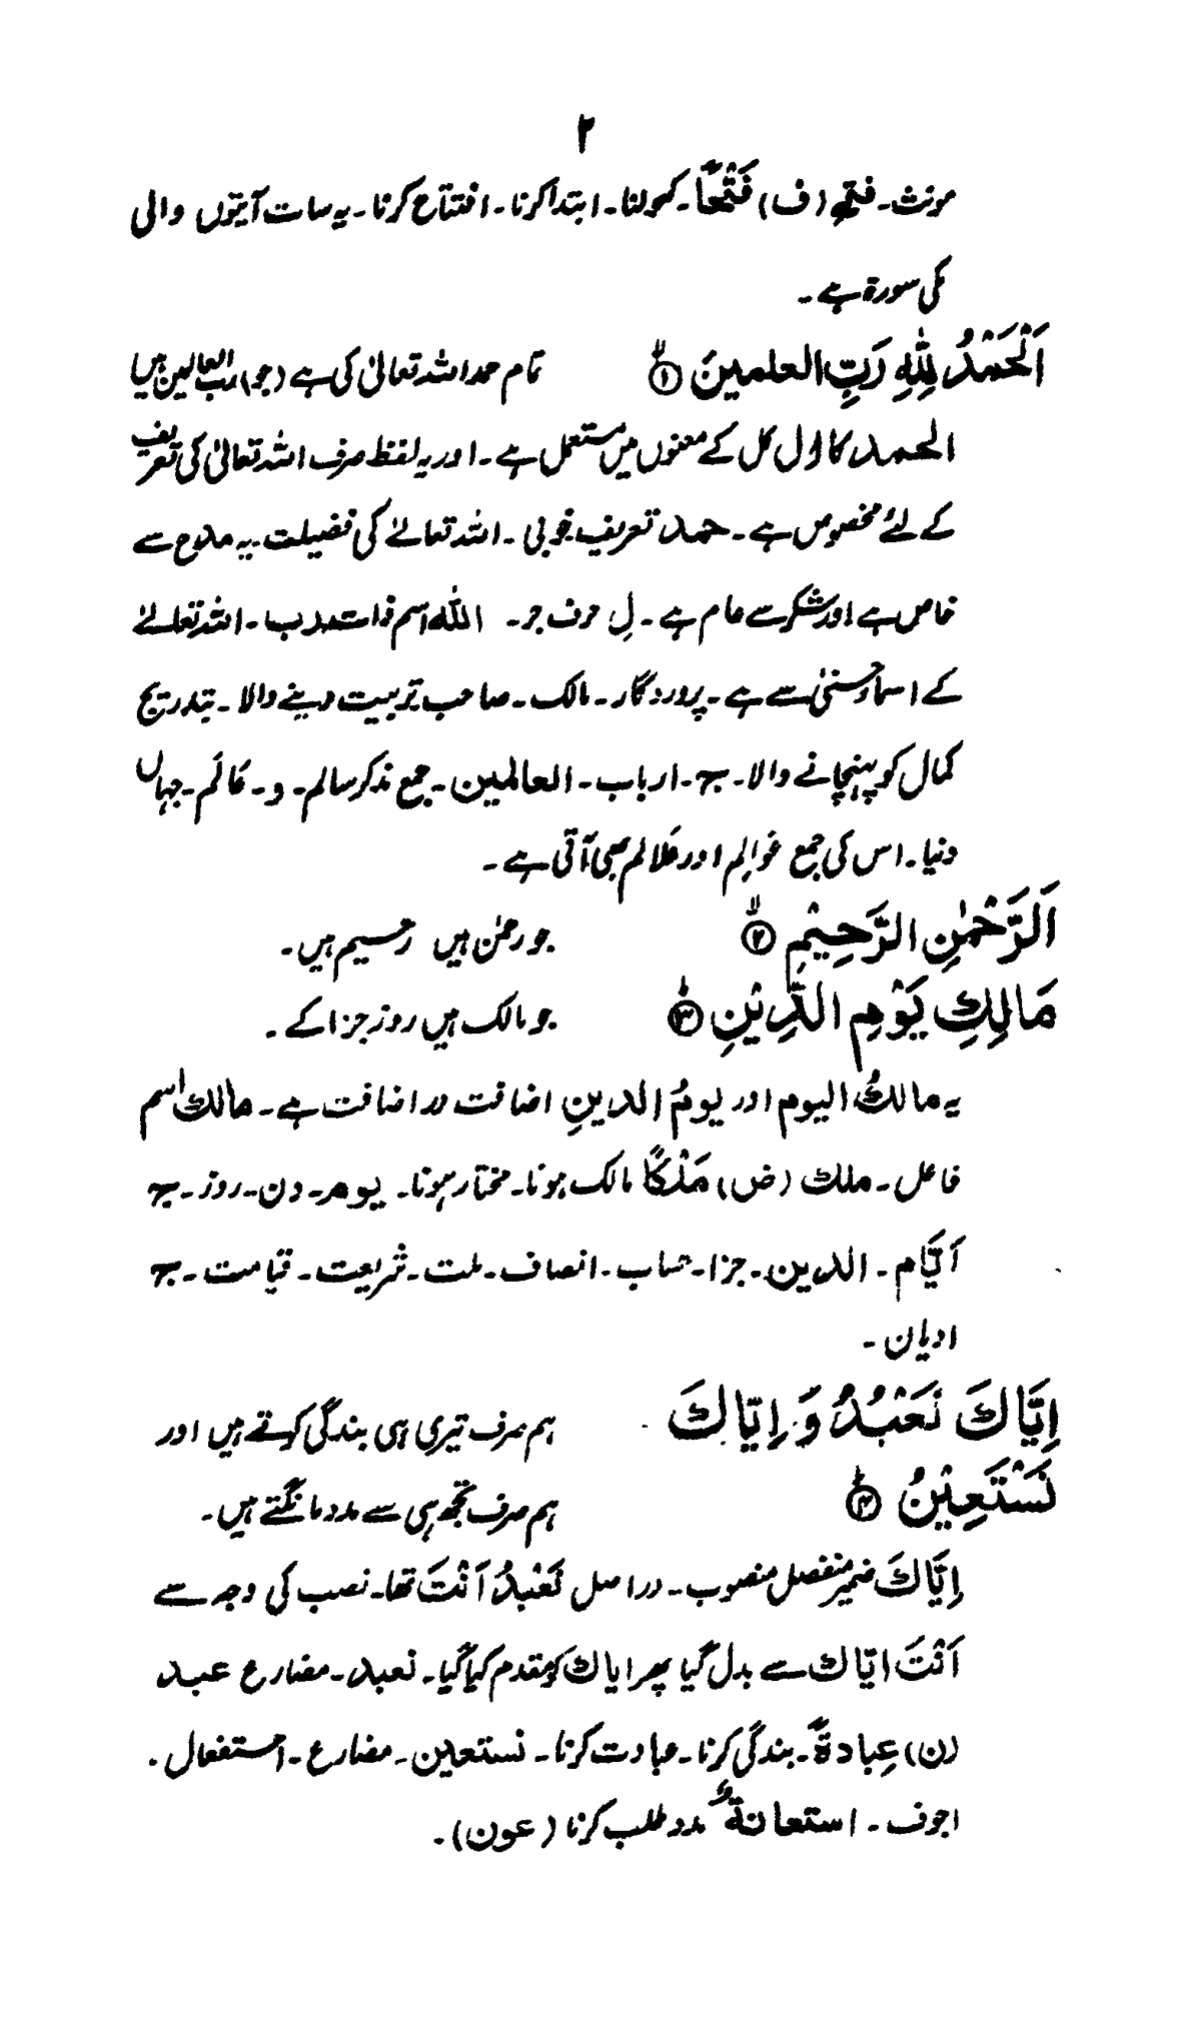 ۲
مونث۔ فتح (ف) فَتْحًا۔ کھولنا۔ ابتدا کرنا۔ افتتاح کرنا۔ یہ سات آیتوں والی
مکی سورۃ ہے۔
اَلْحَمْدُ لِلّٰهِ رَبِّ العلمينَ ۙ﴿۱﴾ تمام حمد اللہ تعالیٰ کی ہے (جو) رب العالمین ہیں
الحمد کا اول کل کے معنوں میں مستعمل ہے۔ اور یہ لفظ صرف اللہ تعالیٰ کی تعریف
کے لئے مخصوص ہے۔ حمد تعریف خوبی۔ اللہ تعالےٰ کی فضیلت یہ مدوح سے
خاص ہے اور شکر سے عام ہے۔ لِ حرف جر۔ اللّٰہ اسم ذات۔ رب۔ اللہ تعالےٰ
کے اسماء حسنیٰ سے ہے۔ پروردگار۔ مالک۔ صاحب تربیت دینے والا۔ بتدریج
کمال کو پہنچانے والا۔ ج۔ ارباب۔ العالمین۔ جمع مذکر سالم۔ و۔ عَالَم۔ جہاں
دنیا۔ اس کی جمع عَوالِم اور عَلالم بھی آتی ہے۔
اَلرَّحْمٰنِ الرَّحِيْمِ ۙ﴿۲﴾ جو رحمٰن ہیں رحیم ہیں۔
مَالِكِ يَوْمِ الدِّيْنِ ﴿۳﴾ؕ جو مالک ہیں روز جزا کے۔
یہ مالكُ اليوم اور يومُ الدينِ اضافت در اضافت ہے۔ مالك اسم
فاعل۔ ملك (ض) مَلْكًا مالک ہونا۔ مختار ہونا۔ يوم۔ دن۔ روز۔ ج
اَيَّام۔ الدين۔ جزا۔ حساب۔ انصاف۔ ملت۔ شریعت۔ قیامت۔ ج
ادیان۔
اِيَّاكَ نَعْبُدُ وَ اِيّاكَ ہم صرف تیری ہی بندگی کرتے ہیں اور
نَسْتَعِيْنُ ﴿۴﴾ؕ ہم صرف تجھ ہی سے مدد مانگتے ہیں۔
اِيَّاكَ ضمیر منفصل منصوب۔ دراصل نَعْبُدُ اَنْتَ تھا۔ نصب کی وجہ سے
اَنْتَ ايّاك سے بدل گیا پھر اياك کو مقدم کیا گیا۔ نعبد۔ مضارع عبد
(ن) عِبادةً۔ بندگی کرنا۔ عبادت کرنا۔ نستعین۔ مضارع۔ استفعال۔
اجوف۔ استعانةٌ مدد طلب کرنا (عون)۔